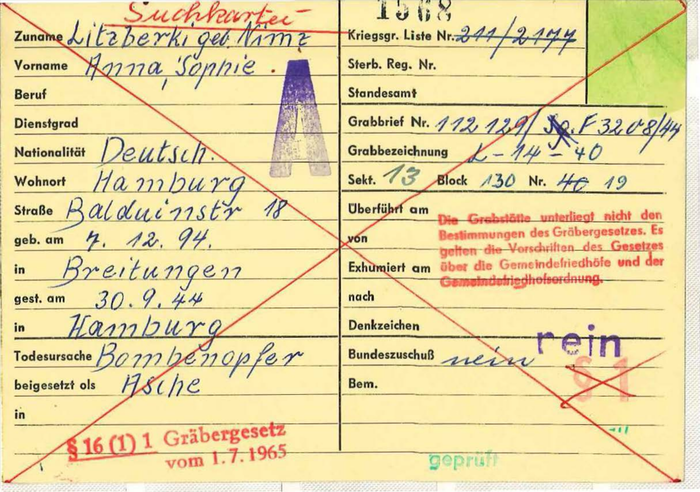 Suchkartei
1568
Zuname Litzberki geb. Nimz
Vorname Anna, Sophie.
Beruf
Dienstgrad
Nationalität Deutsch.
Wohnort Hamburg
Straße Balduinstr 18
geb. am 7. 12. 94.
in Breitungen
gest. am 30. 9. 44
in Hamburg
Todesursache Bombenopfer
beigesetzt als Asche
in
§ 16 (1) 1 Gräbergesetz
vom 1.7.1965
A
Kriegsgr. Liste Nr. 211/2177
Sterb. Reg. Nr.
Standesamt
Grabbrief Nr. 112 129/ F 3208/44
Grabbezeichnung L-14-40
Sekt. 13 Block 130 Nr. 40 19
Überführt am
von
Exhumiert am
nach
Die Grabstätte unterliegt nicht den
Bestimmungen des Gräbergesetzes. Es
gelten die Vorschriften des Gesetzes
über die Gemeindefriedhöfe und der
Gemeindefriedhofsordnung.
Denkzeichen
Bundeszuschuß nein
rein
Bem.
§ 1
geprüft